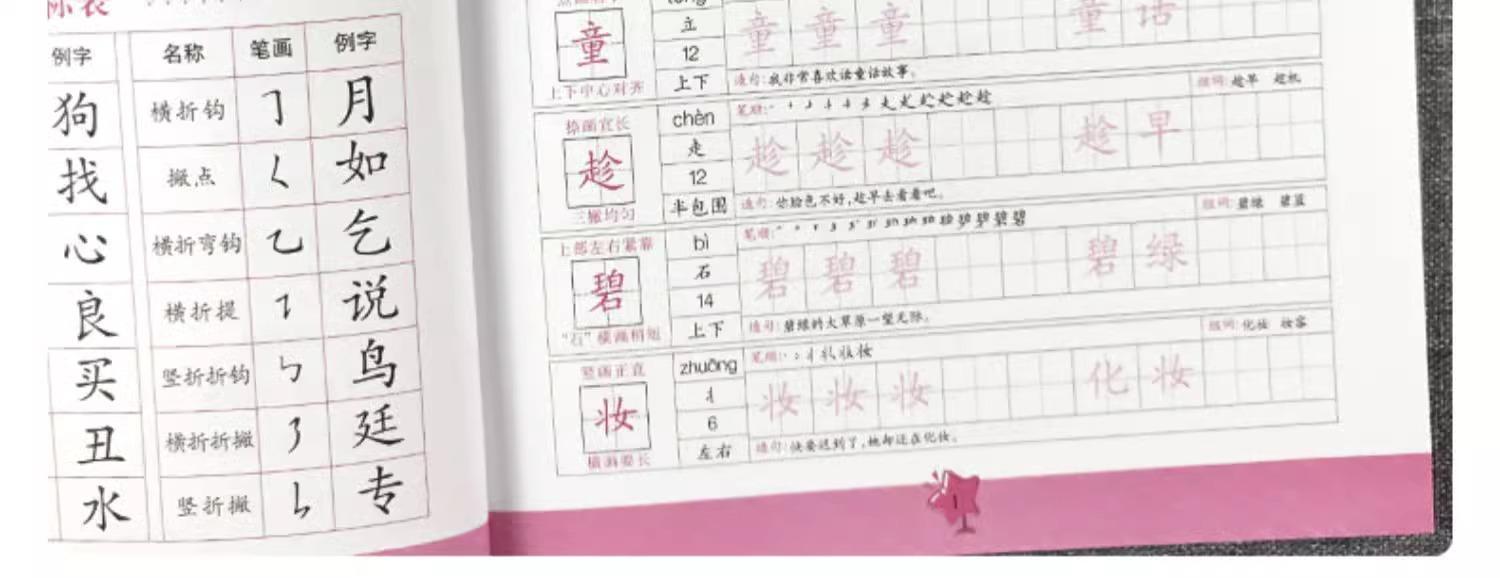 例字 名称 笔画 例字
狗 横折钩 月
找 撇点 如
心 横折弯钩 乞
良 横折提 说
买 竖折折钩 鸟
丑 横折折撇 廷
水 竖折撇 专
童 立 童 童 童 童 话
12
上下中心对齐 上下 造句:我非常喜欢读童话故事。
捺画宜长 chèn 笔顺: 组词:趁早 趁机
趁 走 趁 趁 趁 趁 早
12
三撇均匀 半包围 造句:你脸色不好,趁早去看看吧。
上部左右紧靠 bì 笔顺: 组词:碧绿 碧蓝
碧 石 碧 碧 碧 碧 绿
14
“石”横画稍短 上下 造句:碧绿的大草原一望无际。
竖画正直 zhuāng 笔顺: 组词:化妆 妆容
妆 丬 妆 妆 妆 化 妆
6
横画要长 左右 造句:快要迟到了,她却还在化妆。
1